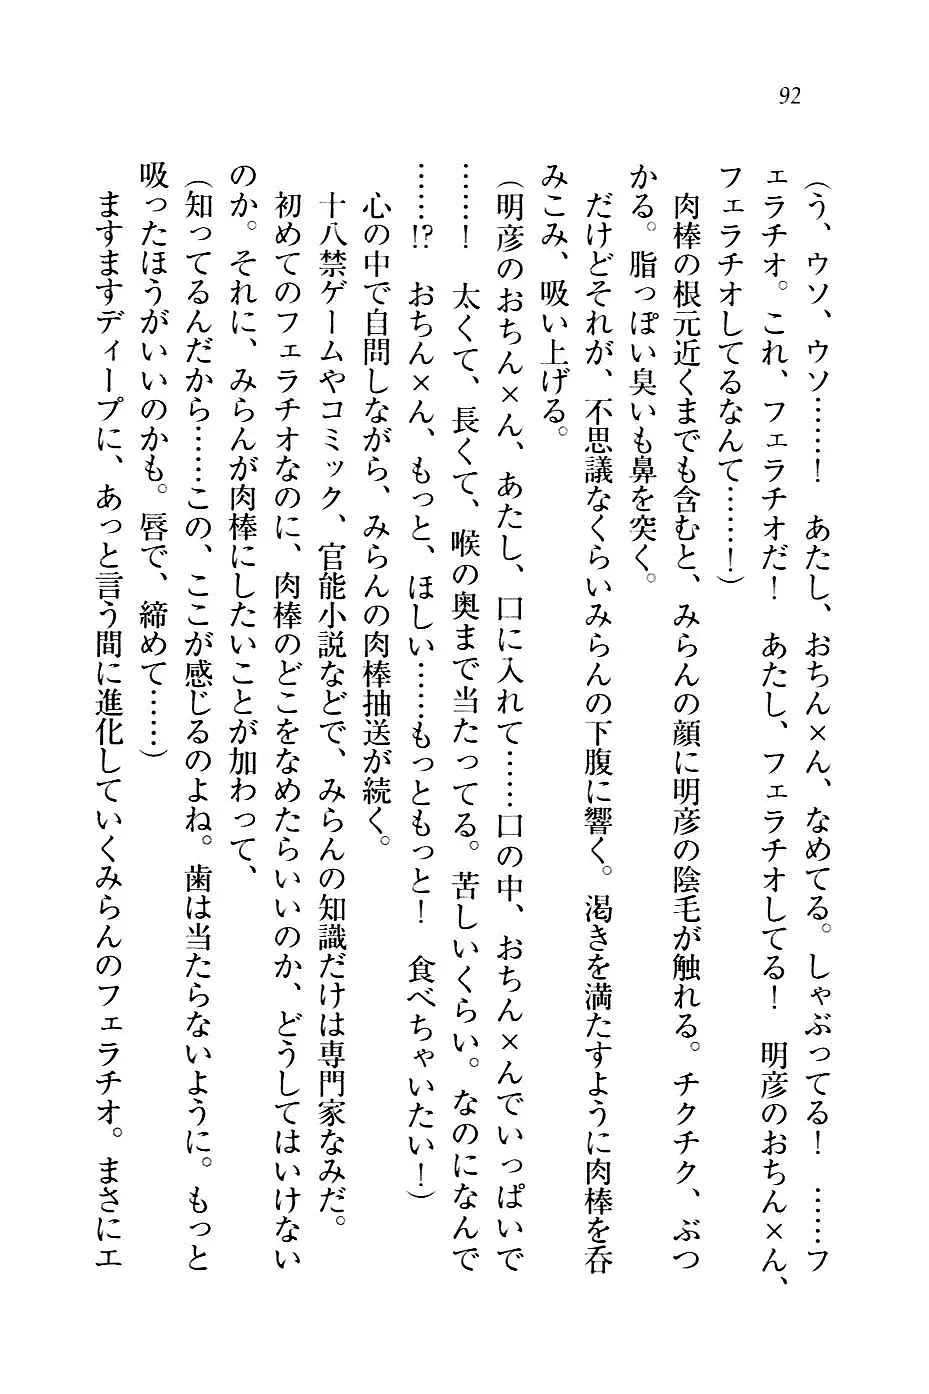 92
（う、ウソ、ウソ……！　あたし、おちん×ん、なめてる。しゃぶってる！　……フ
ェラチオ。これ、フェラチオだ！　あたし、フェラチオしてる！　明彦のおちん×ん、
フェラチオしてるなんて……！）
　肉棒の根元近くまでも含むと、みらんの顔に明彦の陰毛が触れる。チクチク、ぶつ
かる。脂っぽい臭いも鼻を突く。
　だけどそれが、不思議なくらいみらんの下腹に響く。渇きを満たすように肉棒を呑
みこみ、吸い上げる。
（明彦のおちん×ん、あたし、口に入れて……口の中、おちん×んでいっぱいで
……！　太くて、長くて、喉の奥まで当たってる。苦しいくらい。なのになんで
……!?　おちん×ん、もっと、ほしい……もっともっと！　食べちゃいたい！）
　心の中で自問しながら、みらんの肉棒抽送が続く。
　十八禁ゲームやコミック、官能小説などで、みらんの知識だけは専門家なみだ。
　初めてのフェラチオなのに、肉棒のどこをなめたらいいのか、どうしてはいけない
のか。それに、みらんが肉棒にしたいことが加わって、
（知ってるんだから……この、ここが感じるのよね。歯は当たらないように。もっと
吸ったほうがいいのかも。唇で、締めて……）
　ますますディープに、あっと言う間に進化していくみらんのフェラチオ。まさにエ